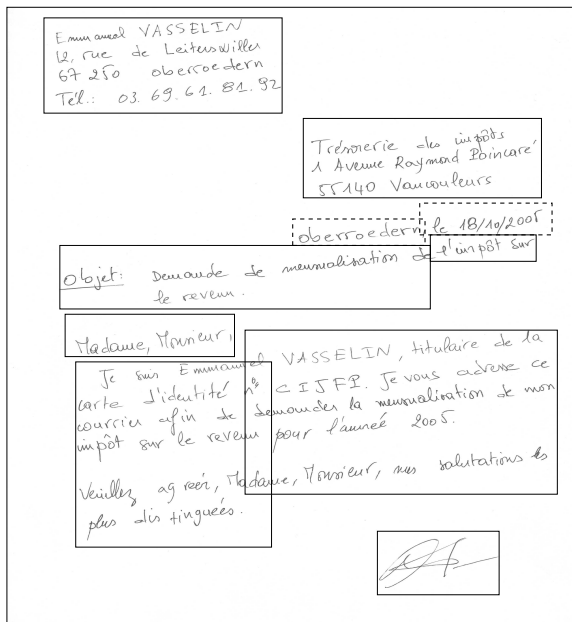 Emmanuel VASSELIN
12, rue de Leiterswiller
67 250 oberroedern
Tél.: 03. 69. 61. 81. 92
Trésorerie des impôts
1 Avenue Raymond Poincaré
55140 Vaucouleurs
oberroedern, le 18/10/2005
Objet: Demande de mensualisation de l'impôt sur
le revenu.
Madame, Monsieur,
Je suis Emmanuel VASSELIN, titulaire de la
carte d'identité n° CIJFP. Je vous adresse ce
courrier afin de demander la mensualisation de mon
impôt sur le revenu pour l'année 2005.
Veuillez agréer, Madame, Monsieur, mes salutations les
plus distinguées.